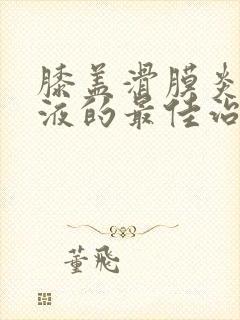 膝盖滑膜炎
液的最佳治
董飛